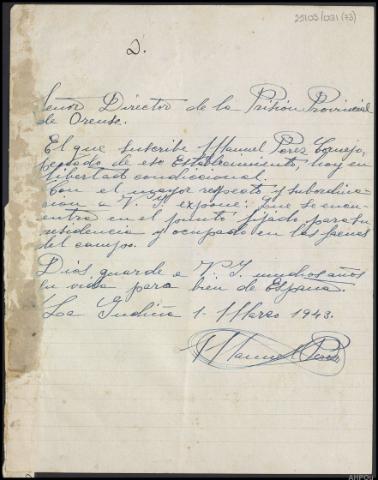 25105/031 (73)
2.
Señor Director de la Prisión Provincial
de Orense.
El que suscribe Manuel Pérez Cornejo,
penado de ese Establecimiento, hoy en
libertad condicional.
Con el mayor respecto y subordina-
ción a V. I. expone: que se encu-
entra en el punto fijado para su
residencia y ocupado en las faenas
del campo.
Dios guarde a V. I. muchos años
su vida para bien de España.
La Gudiña 1. Marzo 1943.
Manuel Pérez
AHPOU